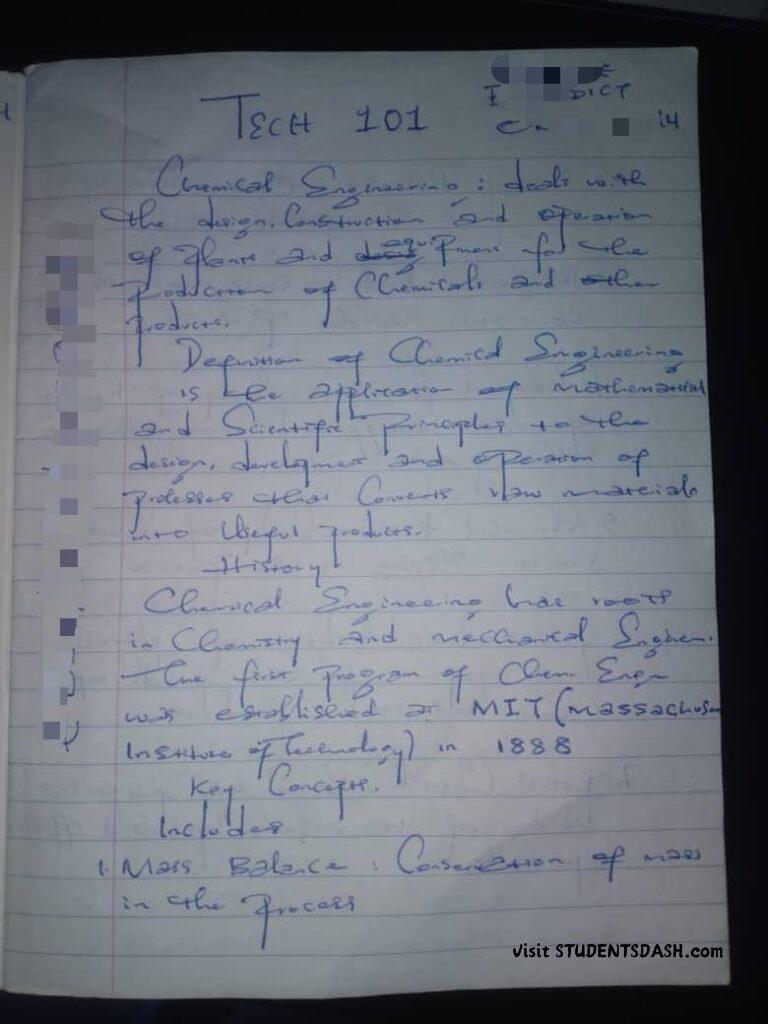 TECH 101
DICT
Chemical Engineering: deals with
the design, Construction and operation
of Plants and equipment for the
Production of Chemicals and other
Products.
Definition of Chemical Engineering
is the application of mathematical
and Scientific Principles to the
design, development and operation of
Processes that Converts raw materials
into Useful Products.
History
Chemical Engineering has roots
in Chemistry and mechanical Engineer.
The first Program of Chem. Engr
was established at MIT (Massachuse
Institute of Technology) in 1888
Key Concepts.
Includes
1. Mass Balance: Conservation of mass
in the Process
Visit STUDENTSDASH.com